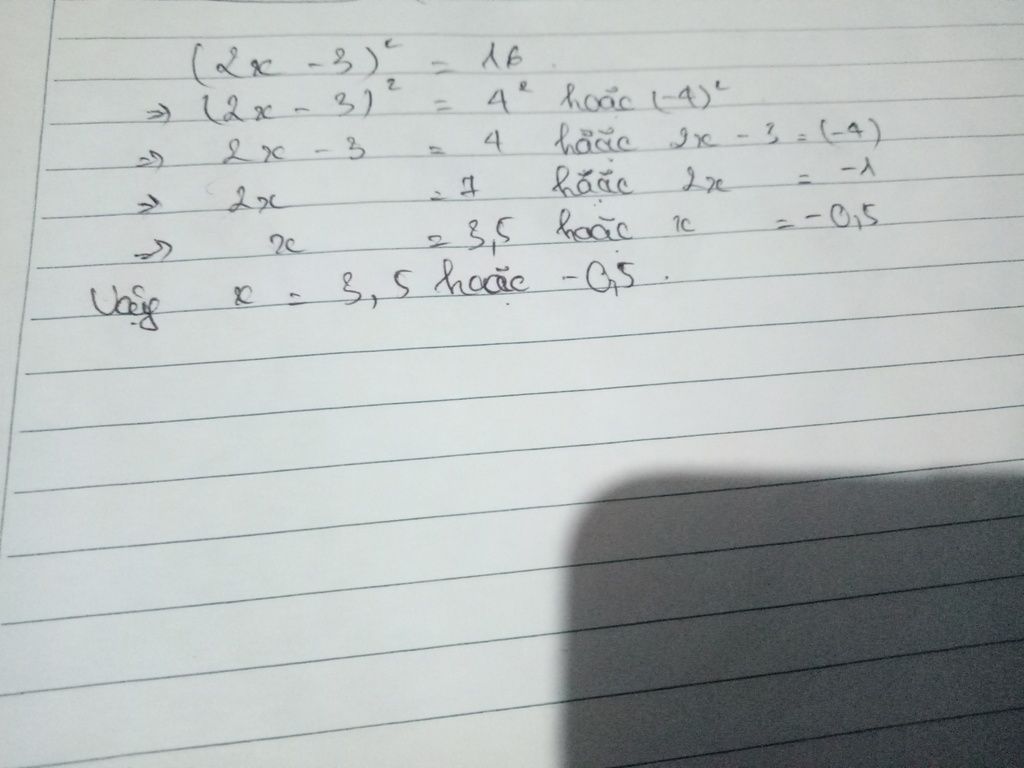 (2x - 3)² = 16.
=> (2x - 3)² = 4² hoặc (-4)²
=> 2x - 3 = 4 hoặc 2x - 3 = (-4)
=> 2x = 7 hoặc 2x = -1
=> x = 3,5 hoặc x = -0,5
Vậy x = 3,5 hoặc -0,5.